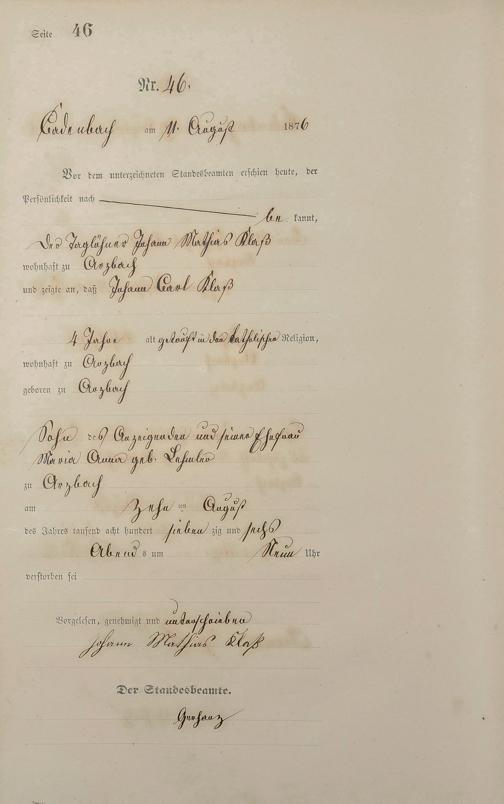 Seite 46
Nr. 46.
Cadenbach am 11. August 1876
Vor dem unterzeichneten Standesbeamten erschien heute, der
Persönlichkeit nach
be kannt,
der Taglöhner Johann Mathias Klaß
wohnhaft zu Arzbach
und zeigte an, daß Johann Carl Klaß
4 Jahre alt getauft in der katholischen Religion,
wohnhaft zu Arzbach
geboren zu Arzbach
Sohn des Anzeigenden und seiner Ehefrau
Maria Anna geb. Lehmler
zu Arzbach
am Zehn ten August
des Jahres tausend acht hundert sieben zig und sechs
Abend s um Neun Uhr
verstorben sei
Vorgelesen, genehmigt und unterschrieben
Johann Mathias Klaß
Der Standesbeamte.
Gerharz